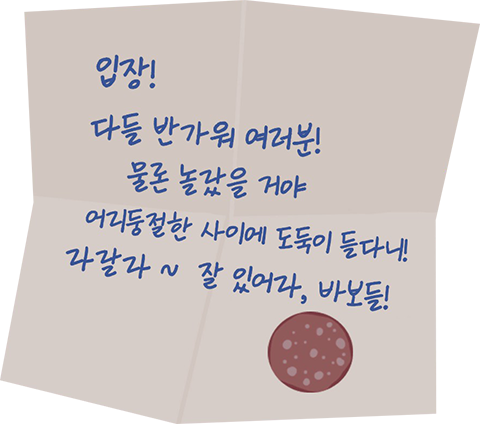 입장!
다들 반가워 여러분!
물론 놀랐을 거야
어리둥절한 사이에 도둑이 들다니!
라랄라 ~ 잘 있어라, 바보들!